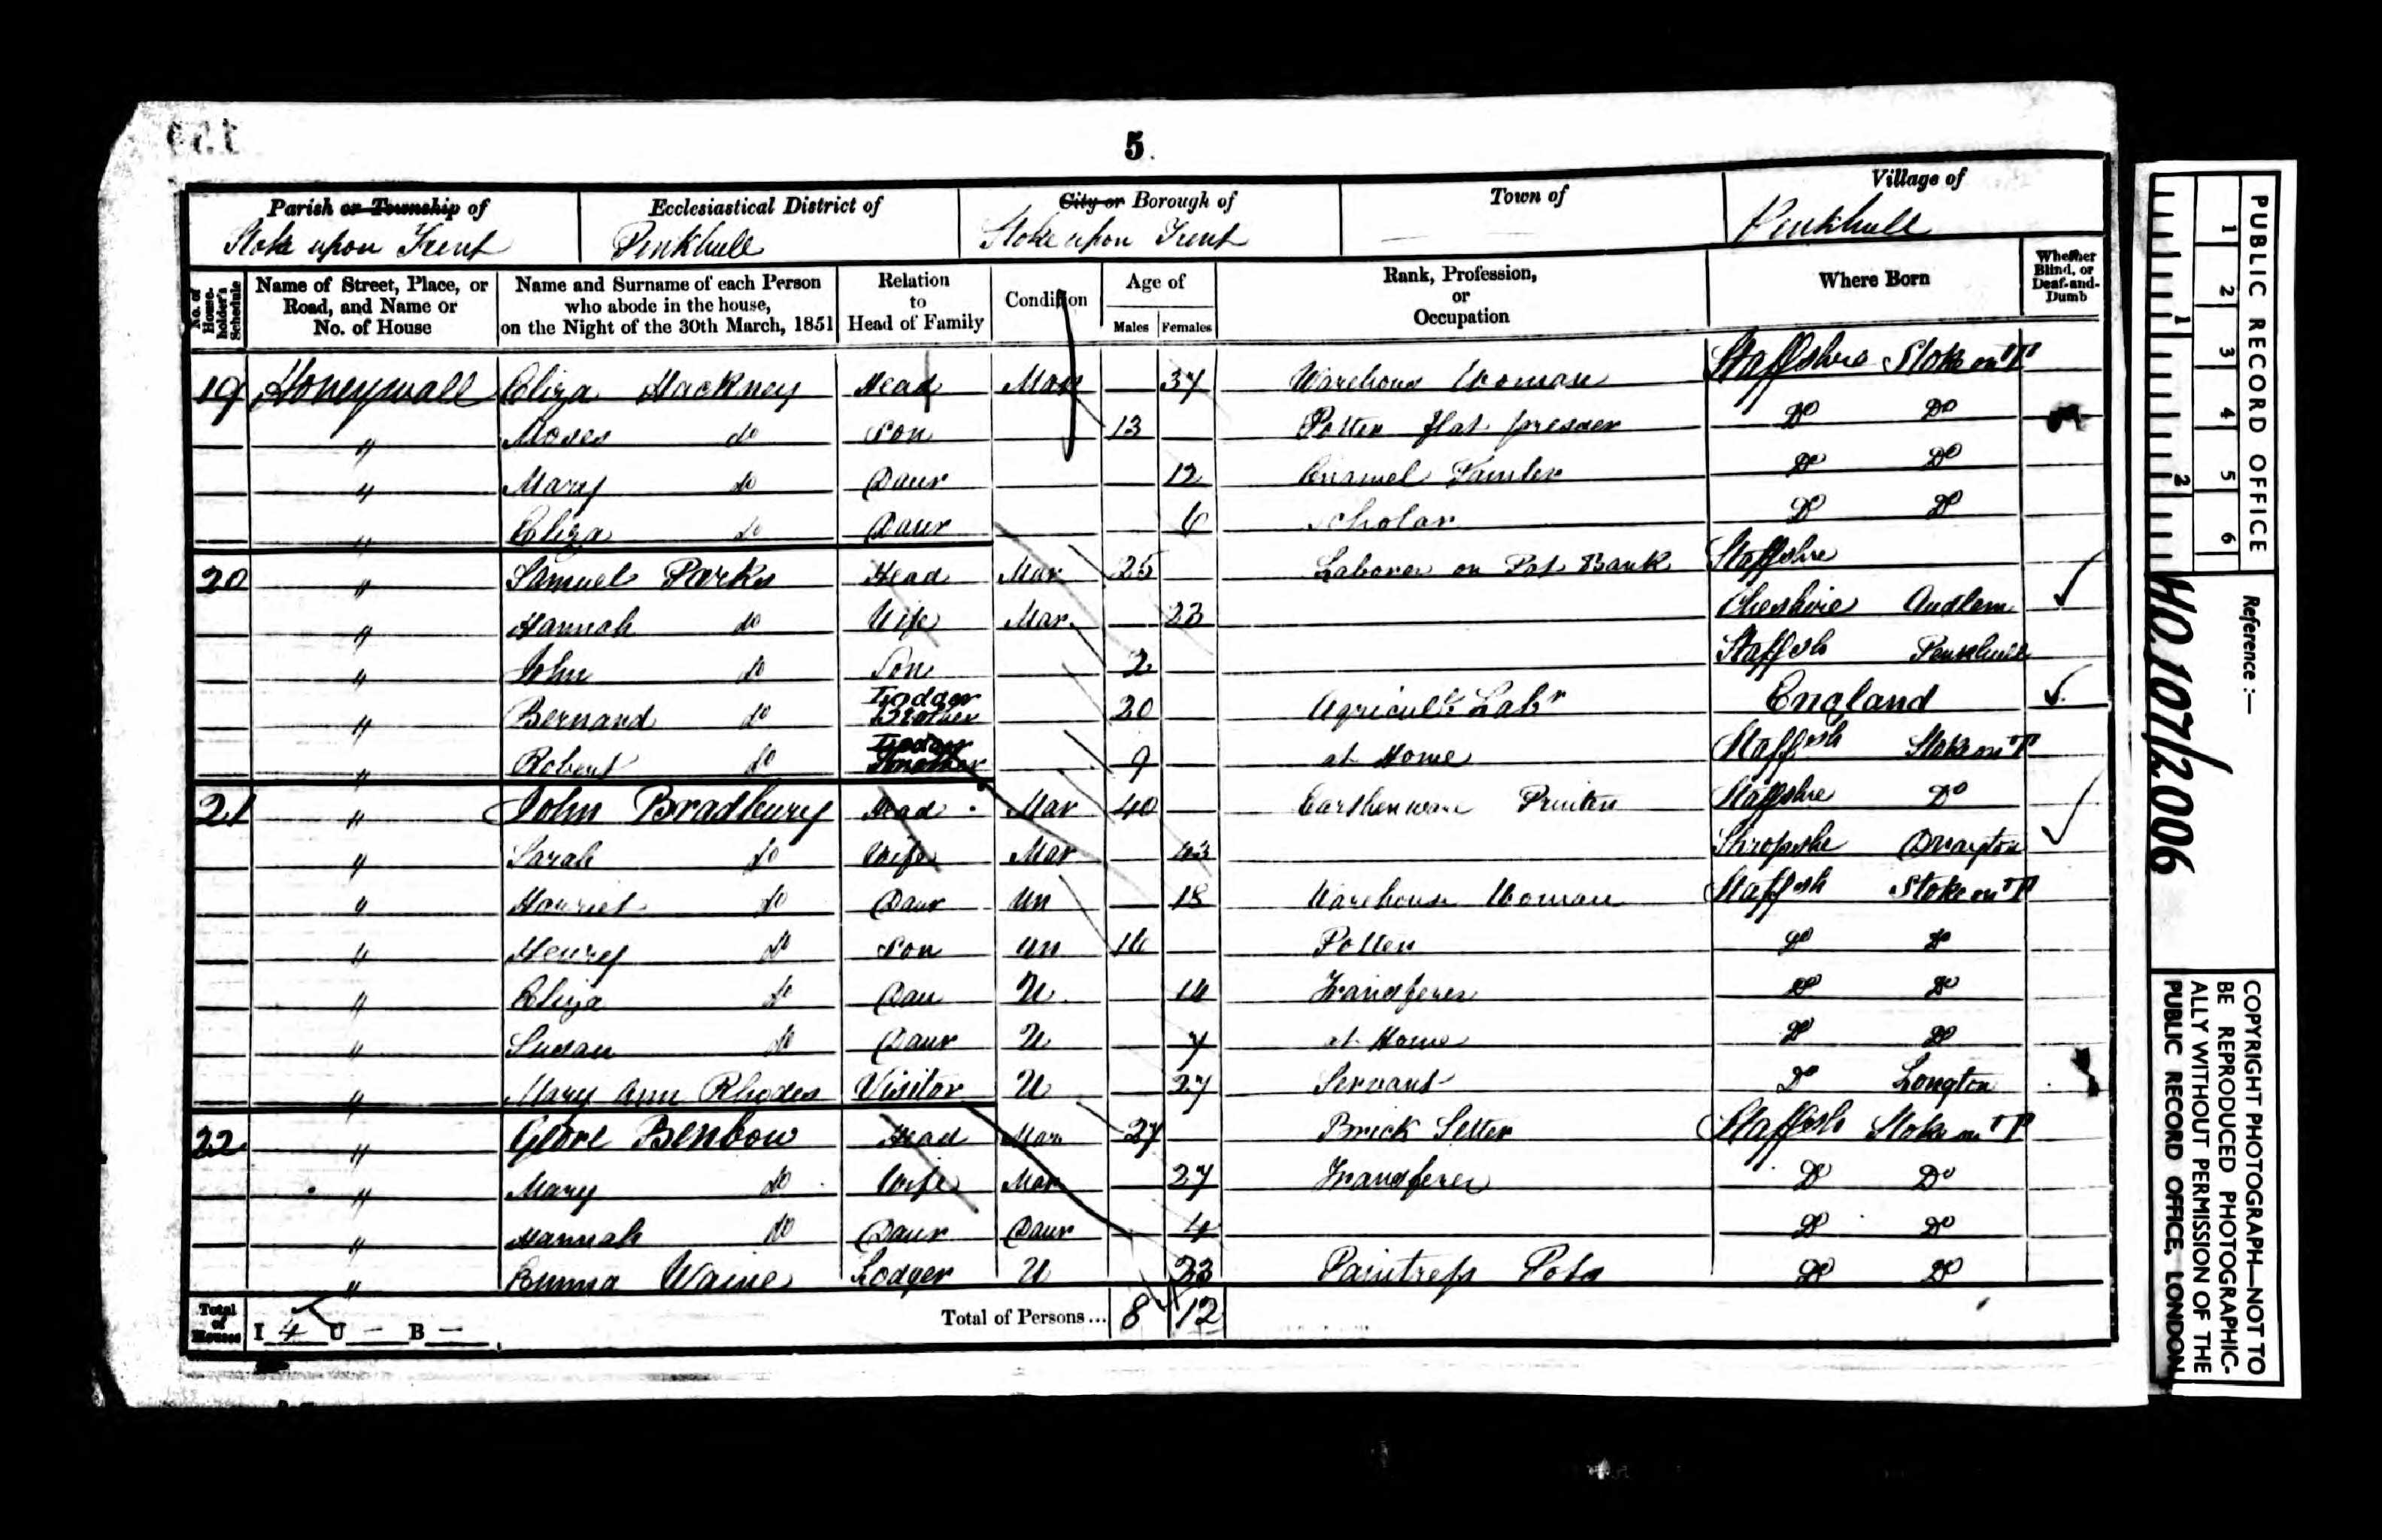 5.
Parish or Township of Ecclesiastical District of City or Borough of Town of Village of
Stoke upon Trent Penkhull Stoke upon Trent Penkhull
No. of House-holder's Schedule Name of Street, Place, or Road, and Name or No. of House Name and Surname of each Person who abode in the house, on the Night of the 30th March, 1851 Relation to Head of Family Condition Age of Males Females Rank, Profession, or Occupation Where Born Whether Blind, or Deaf-and-Dumb
19 Honeywall Eliza Hackney Head Mar 37 Warehouse Woman Staffshire Stoke on T
" Moses do Son 13 Potter flat presser Do Do
" Mary do Daur 12 Enamel Painter Do Do
" Eliza do Daur 6 Scholar Do Do
20 " Samuel Parks Head Mar 25 Laborer on Pot Bank Staffshire
" Hannah do Wife Mar 23 Cheshire Audlem
" John do Son 2 Staffsh Penkhull
" Bernard do Lodger Brother 20 Agricull Labr England
" Robert do Lodger 9 at Home Staffsh Stoke on T
21 " John Bradbury Head Mar 40 Earthenware Printer Staffshre Do
" Sarah do Wife Mar 43 Shropshe Drayton
" Harriet do Daur Un 18 Warehouse Woman Staffsh Stoke on T
" Henry do Son Un 16 Potter Do Do
" Eliza do Dau U 14 Transferer Do Do
" Susan do Daur U 7 at Home Do Do
" Mary Ann Rhodes Visitor U 27 Servant Do Longton
22 " Geore Benbow Head Mar 27 Brick Setter Staffsh Stoke on T
" Mary do Wife Mar 27 Transferer Do Do
" Hannah do Daur Daur 4 Do Do
" Emma Waine Lodger U 23 Paintress Pots Do Do
Total of Houses I 4 U — B — Total of Persons... 8 12
PUBLIC RECORD OFFICE
1 2 3 4 5 6
1 2
Reference :—
HO 107/2006
COPYRIGHT PHOTOGRAPH—NOT TO BE REPRODUCED PHOTOGRAPHIC-ALLY WITHOUT PERMISSION OF THE PUBLIC RECORD OFFICE, LONDON